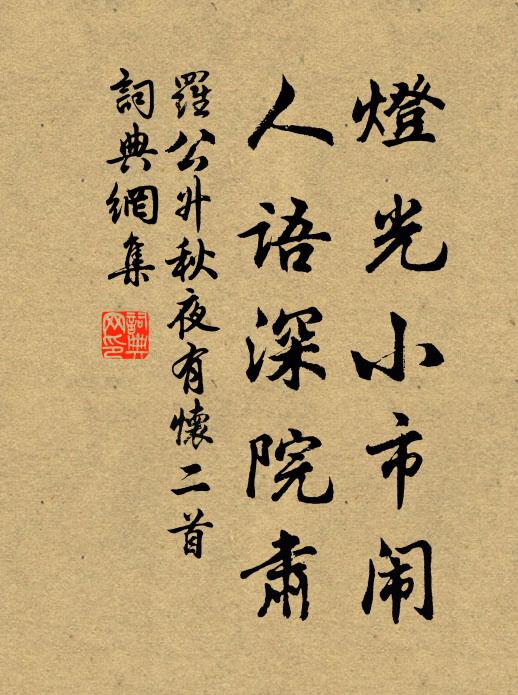 燈光小市闹
人語深院肅
羅公升秋夜有懷二首
詞典網集
詞典
网印